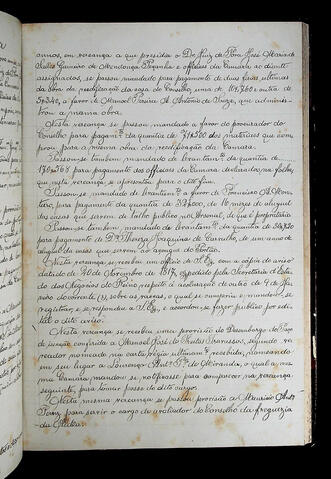 annos, em vereança a que presidio o Dr Juiz de Fora José Maria de
Salles de Mendonça Peçanha e officiaes da Camara ao diante
assignados, se passou mandado para pagamento de duas ferias ultimas
da obra da rectificação da casa do Conselho, uma de 114,760 e outra de
54$240, a favor de Manoel Pereira A. Antonio de Souza, que adminis-
trou a mesma obra.
Nesta vereança se passou mandado a favor do procurador do
Conselho para pagamto da quantia de 71$380 dos materiaes que com
prou para a mesma obra da rectificação da Camara.
Passou-se tambem mandado de levantamto da quantia de
179$368 para pagamento dos officiaes da Camara declarados na folha,
que nesta vereança se apresentou para o dito fim.
Passou-se mandado de levantamto a favor de Francisco A. Mon
teiro, para pagamento da quantia de 32$000, de 10 mezes de aluguel
das casas que servem de talho publico no Arsenal, de que é proprietario
Passou-se tambem, mandado de levantamto da quantia de
para pagamento de Da Thereza Joaquina de Carvalho, de um anno de
aluguel da casa que serve ao açougue do Portão.
Nesta vereança se recebeu um officio de S. Exa com a cópia do aviso
datado de 20 de Novembro de 1817, expedido pela Secretaria d'Esta
do dos Negocios do Reino respeito á acclamação de outro de 9 de Ja-
neiro do corrente sobre as rezas, o qual se cumprio e mandou-se
registrar; e se respondeu a S. Exa, e accordou-se fazer publico por edi-
tal o dito aviso.
Nesta vereança se recebeu uma provisão do Desembargo do Paço
de isenção conferida a Manoel José de Prados Travassos, segundo ve-
reador nomeado na carta regia ultimamte recebida, nomeando
em seu lugar a Lourenço Anto Fa de Miranda, o qual a mes
ma Camara, mandou se notificasse para comparecer na vereança
seguinte, para tomar posse do dito cargo.
Nesta mesma vereança se passou provisão a Mauricio Anto
para servir o cargo de avaliador do Conselho da freguezia
da